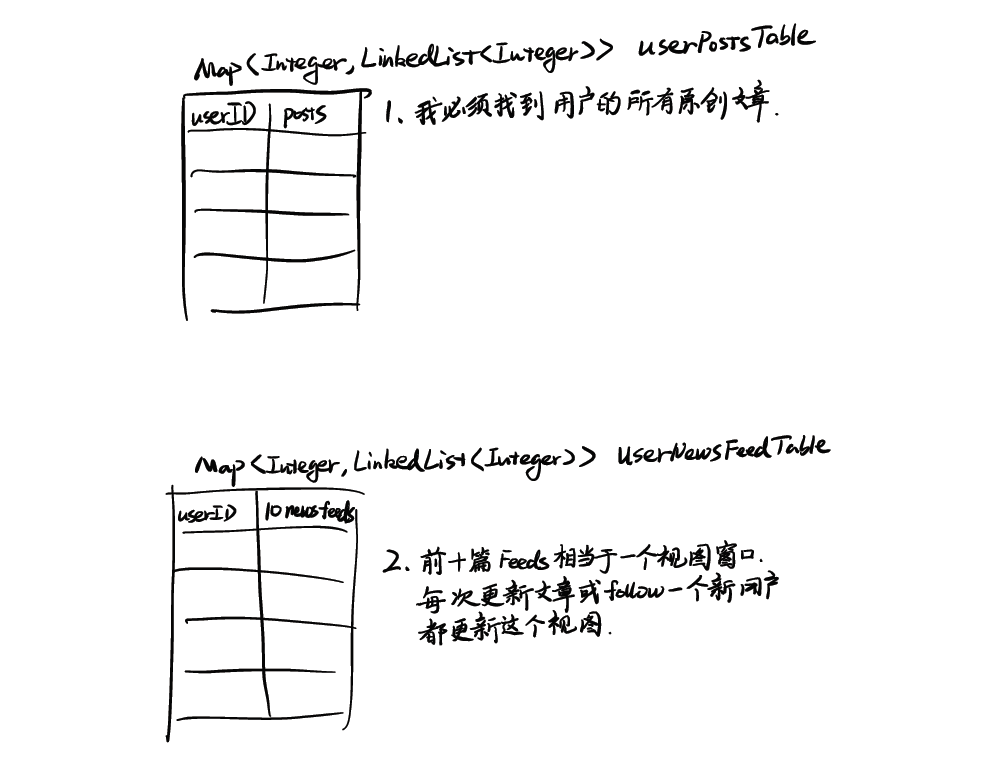 Map<Integer, LinkedList<Integer>> userPostsTable
userID posts
1、我必须找到用户的所有原创文章.
Map<Integer, LinkedList<Integer>> userNewsFeedTable
userID 10 newsfeeds
2. 前十篇 Feeds 相当于一个视图窗口.
每次更新文章或follow一个新用户
都更新这个视图.